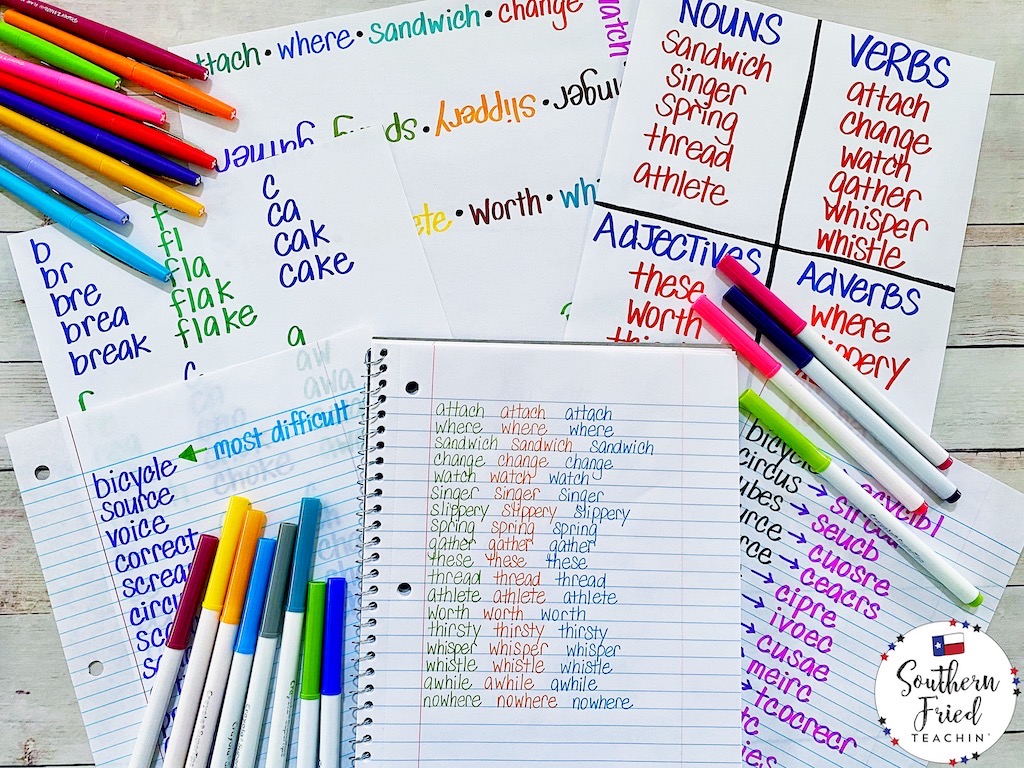 attach • where • sandwich • change
watch
singer
slippery •
gather
worth •
b
br
bre
brea
break
f
fl
fla
flak
flake
c
ca
cak
cake
a
aw
awa
NOUNS
sandwich
singer
spring
thread
athlete
VERBS
attach
change
watch
gather
whisper
whistle
Adjectives
these
worth
Adverbs
where
slippery
most difficult
bicycle
source
voice
correct
choke
attach attach attach
where where where
sandwich sandwich sandwich
change change change
watch watch watch
singer singer singer
slippery slippery slippery
spring spring spring
gather gather gather
these these these
thread thread thread
athlete athlete athlete
worth worth worth
thirsty thirsty thirsty
whisper whisper whisper
whistle whistle whistle
awhile awhile awhile
nowhere nowhere nowhere
bicycle
circus →
→ seucb
→ cuosre
→ ceacrs
→ cipre
→ ivoec
→ cusae
→ meirc
→ tcocrecr
Southern
Fried
TEACHIN'